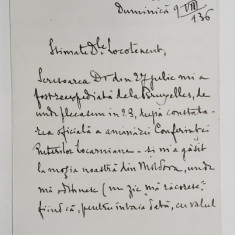 Duminică 9 VIII 1936
Stimate Dle Locotenent,
Scrisoarea Dv din 27 iulie mi a
fost reexpediată dela Bruxelles, de
unde plecasem in 28, după constata-
rea oficială a amanării Conferinței
Puterilor Locarniene – și m'a găsit
la moșia noastră din Moldova, unde
mă odihnesc (nu zic mă răcoresc,
fiindcă, pentru întâia dată, cu valul